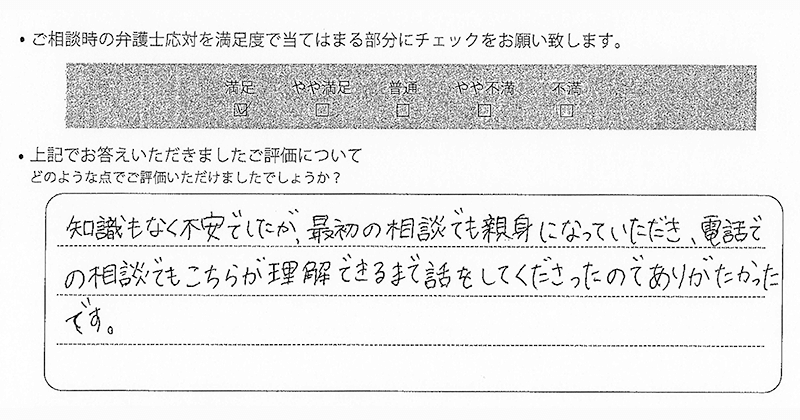 ・ご相談時の弁護士応対を満足度で当てはまる部分にチェックをお願い致します。
満足 やや満足 普通 やや不満 不満
☑ □ □ □ □
・上記でお答えいただきましたご評価について
どのような点でご評価いただけましたでしょうか？
知識もなく不安でしたが、最初の相談でも親身になっていただき、電話で
の相談でもこちらが理解できるまで話をしてくださったのでありがたかった
です。